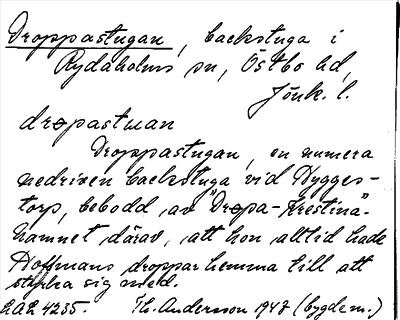 Droppastugan, backstuga i
Rydaholms sn, Östbo hd,
Jönk. l.
dropastuan
Droppastugan, en numera
nedriven backstuga vid Hygges-
torp, bebodd av "Dropa-Krestina".
Namnet därav, att hon alltid hade
Hoffmans droppar hemma till att
styrka sig med.
ULA 4235. Th. Andersson 1947 (bygdem.)